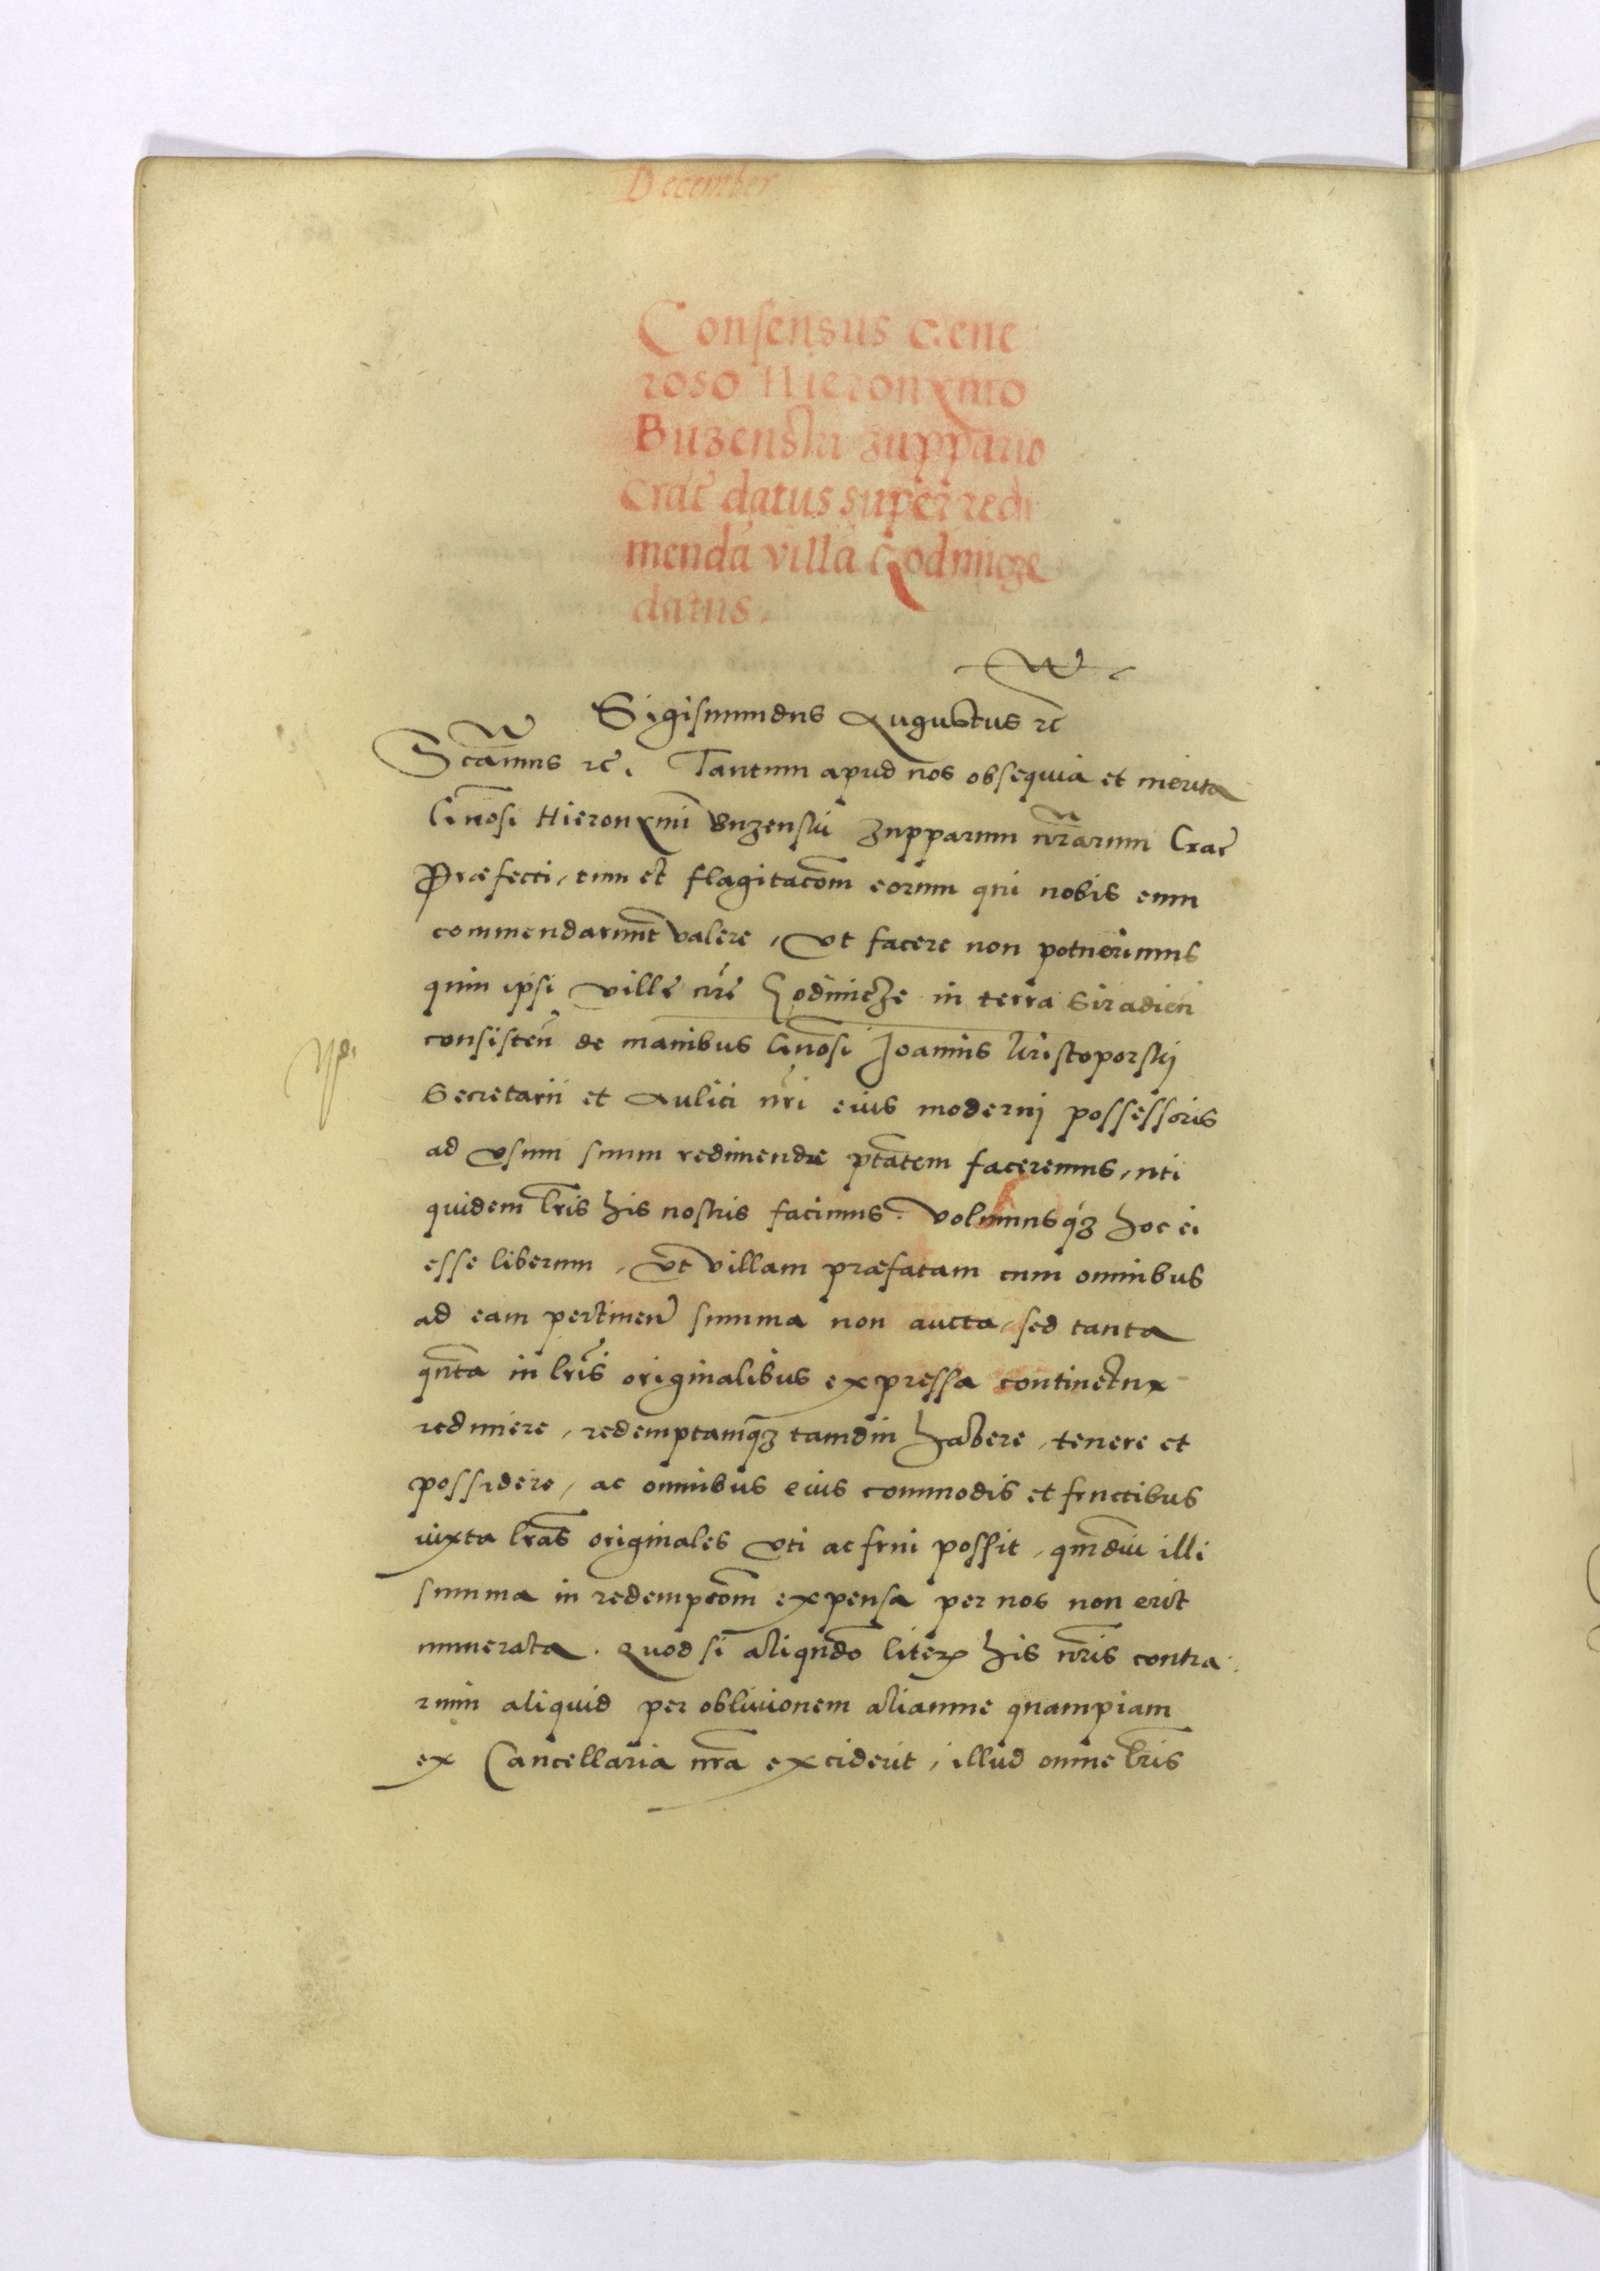 December
Consensus Gene
roso Hieronymo
Buzenski zuppario
Crac̄ datus super redi
menda villa Godinicze
datus.
Sigismundus Augustus rc̄
Sc̄amus rc̄. Tantum apud nos obsequia et merita
Gnōsi Hieronymi Buzenski Zupparum nr̄arum Crac̄
Præfecti, tum et flagitacōm eorum qui nobis eum
commendarunt valere, Vt facere non potuerimus
quin ipsi villę nr̄e Godinicze in terra Siradień
consisteń de manibus Gnōsi Joannis Kristoporskij
Secretarii et Aulici nr̄i eius moderni possessoris
ad vsum suum redimendæ ptātem faceremus, uti
quidem lr̄is his nostris facimus. Volumusqʒ hoc ei
esse liberum, Vt villam præfatam cum omnibus
ad eam pertineń summa non aucta, sed tanta
qn̄ta in lr̄is originalibus expressa continetur
redimere, redemptamqʒ tamdiu habere, tenere et
possidere, ac omnibus eius commodis et fructibus
iuxta lr̄as originales vti ac frui possit, qm̄diu illi
summa in redempcōm expensa per nos non erit
numerata. Quod si aliqn̄do literis his nr̄is contra
rium aliquid per obliuionem aliamue quampiam
ex Cancellaria nr̄a exciderit, illud omne lr̄is